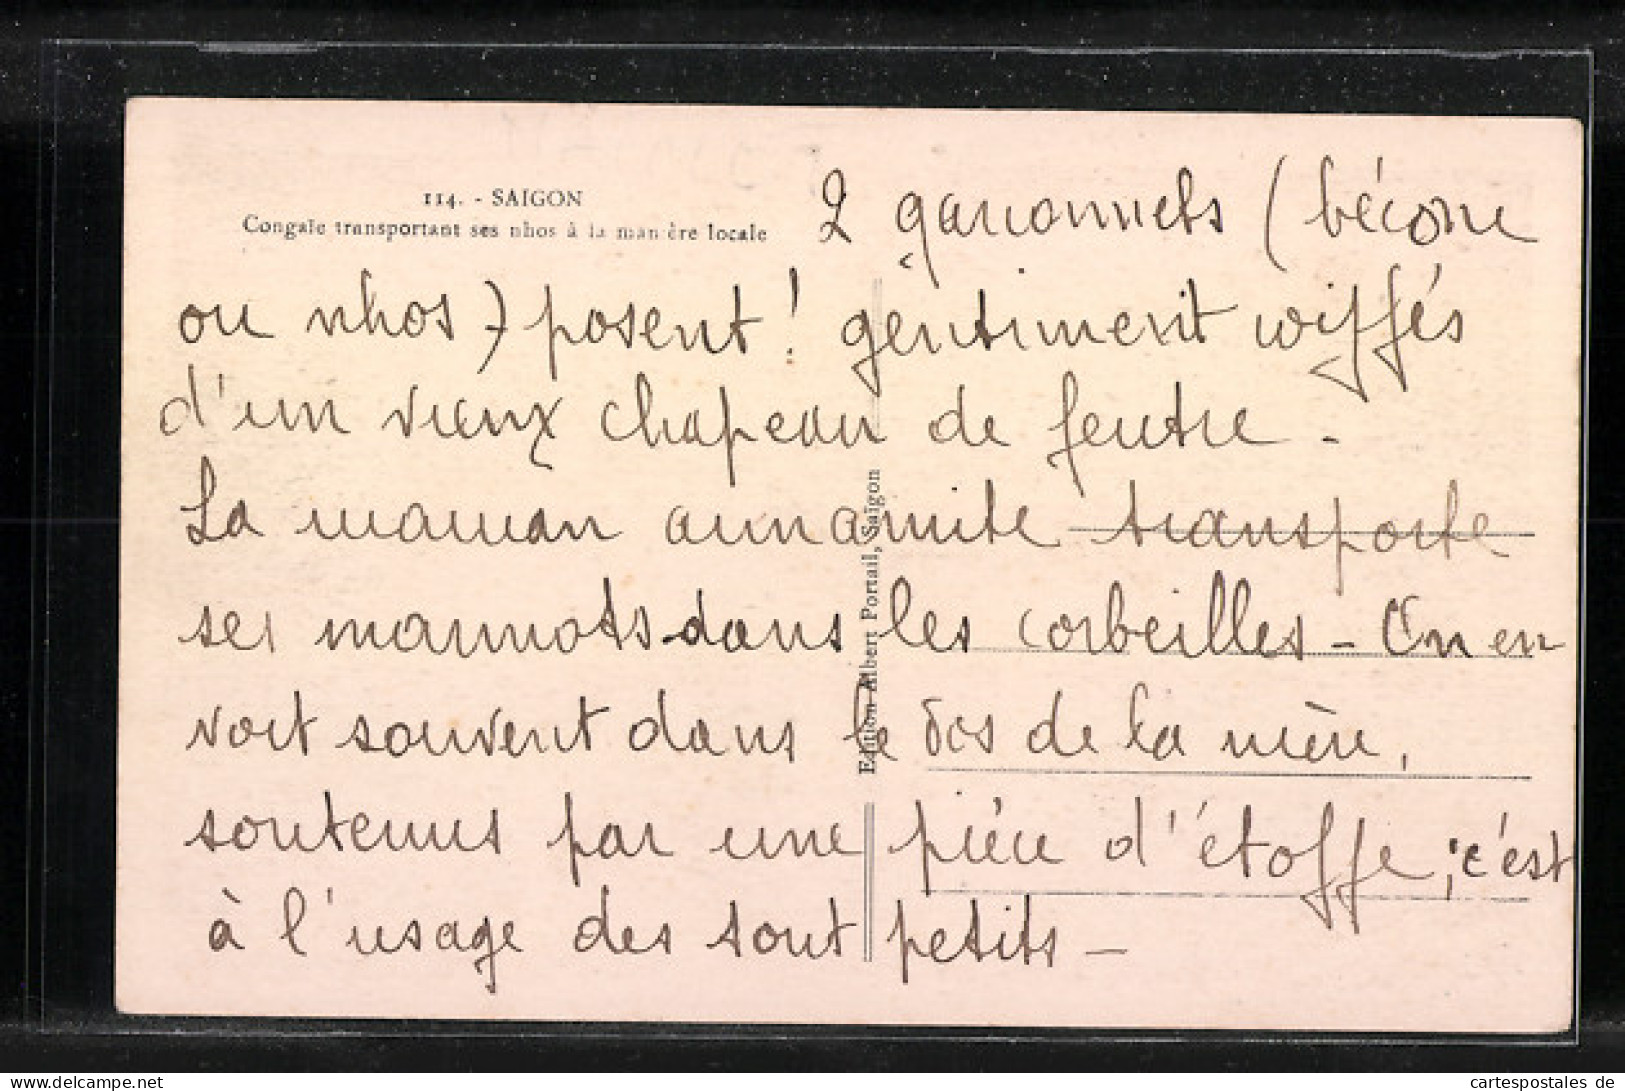 114. - SAIGON
Congaïe transportant ses nhos à la manière locale
2 garçonnets (bécon
ou nhos) posent ! gentiment coiffés
d'un vieux chapeau de feutre -
La maman annamite transporte
ses marmots dans les corbeilles - On en
voit souvent dans le dos de la mère,
soutenus par une pièce d'étoffe ; c'est
à l'usage des tout petits -
Edition Albert Portail, Saïgon
cartespostales de